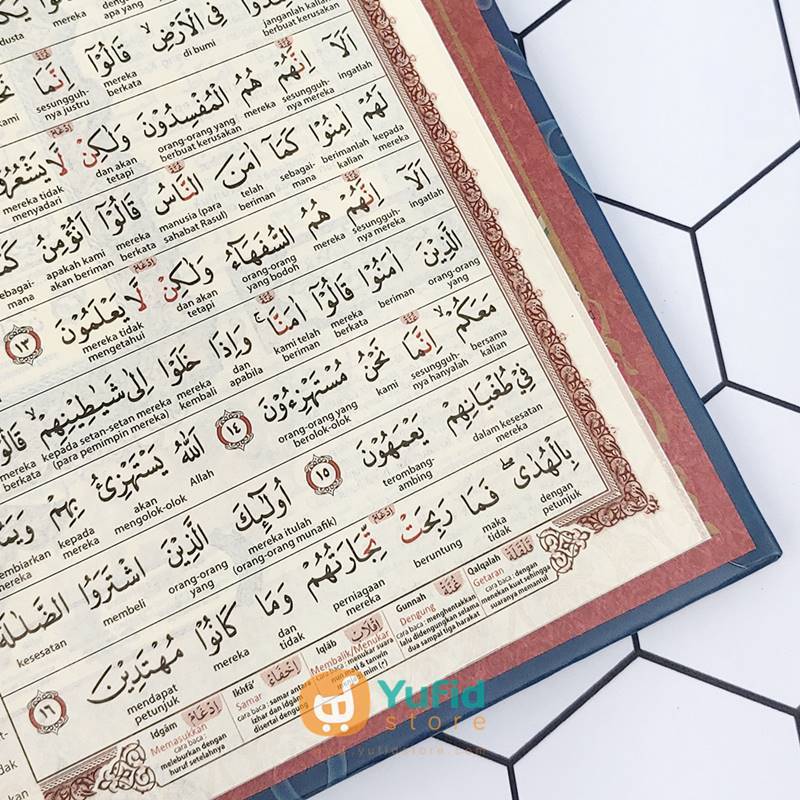 فِى الْاَرْضِۙ قَالُوْٓا اِنَّمَا
janganlah kalian berbuat kerusakan di bumi mereka berkata sesungguh-nya justru kami
اَلَآ اِنَّهُمْ هُمُ الْمُفْسِدُوْنَ وَلٰكِنْ لَّا يَشْعُرُوْنَ
ingatlah sesungguh-nya mereka mereka orang-orang yang berbuat kerusakan dan akan tetapi mereka tidak menyadari
لَهُمْ اٰمِنُوْا كَمَآ اٰمَنَ النَّاسُ قَالُوْٓا اَنُؤْمِنُ كَمَآ
kepada mereka berimanlah kalian sebagai-mana telah beriman manusia (para sahabat Rasul) mereka berkata apakah kami akan beriman sebagai-mana
اَلَآ اِنَّهُمْ هُمُ السُّفَهَاۤءُ وَلٰكِنْ لَّا يَعْلَمُوْنَ ١٣
ingatlah sesungguh-nya mereka mereka orang-orang yang bodoh dan akan tetapi mereka tidak mengetahui
الَّذِيْنَ اٰمَنُوْا قَالُوْٓا اٰمَنَّاۚ وَاِذَا خَلَوْا اِلٰى شَيٰطِيْنِهِمْۙ قَالُوْٓا
orang-orang yang beriman mereka berkata kami telah beriman dan apabila mereka kembali kepada setan-setan mereka (para pemimpin mereka) mereka berkata
مَعَكُمْۙ اِنَّمَا نَحْنُ مُسْتَهْزِءُوْنَ ١٤ اَللّٰهُ يَسْتَهْزِئُ بِهِمْ
bersama kalian sesungguh-nya hanyalah kami orang-orang yang berolok-olok Allah akan mengolok-olok kepada mereka
فِيْ طُغْيَانِهِمْ يَعْمَهُوْنَ ١٥ اُولٰۤىِٕكَ الَّذِيْنَ اشْتَرَوُا الضَّلٰلَةَ
dalam kesesatan mereka terombang-ambing mereka itulah (orang-orang munafik) orang-orang yang membeli kesesatan
بِالْهُدٰىۖ فَمَا رَبِحَتْ تِّجَارَتُهُمْ وَمَا كَانُوْا مُهْتَدِيْنَ ١٦
dengan petunjuk maka tidak beruntung perniagaan mereka dan tidak mereka mendapat petunjuk
قَلْقَلَةْ Qalqalah Getaran cara baca : dengan menekan kuat sehingga suaranya memantul
غُنَّةْ Gunnah Dengung cara baca : menghentakkan lalu didengungkan selama dua sampai tiga harakat
اِقْلَابْ Iqlāb Membalik/Menukar cara baca : menukar suara nun mati & tanwin
اِخْفَاءْ Ikhfā' Samar cara baca : samar antara izhar dan idgām disertai dengung
اِدْغَامْ Idgām Memasukkan cara baca : meleburkan dengan huruf setelahnya
Yufid
store